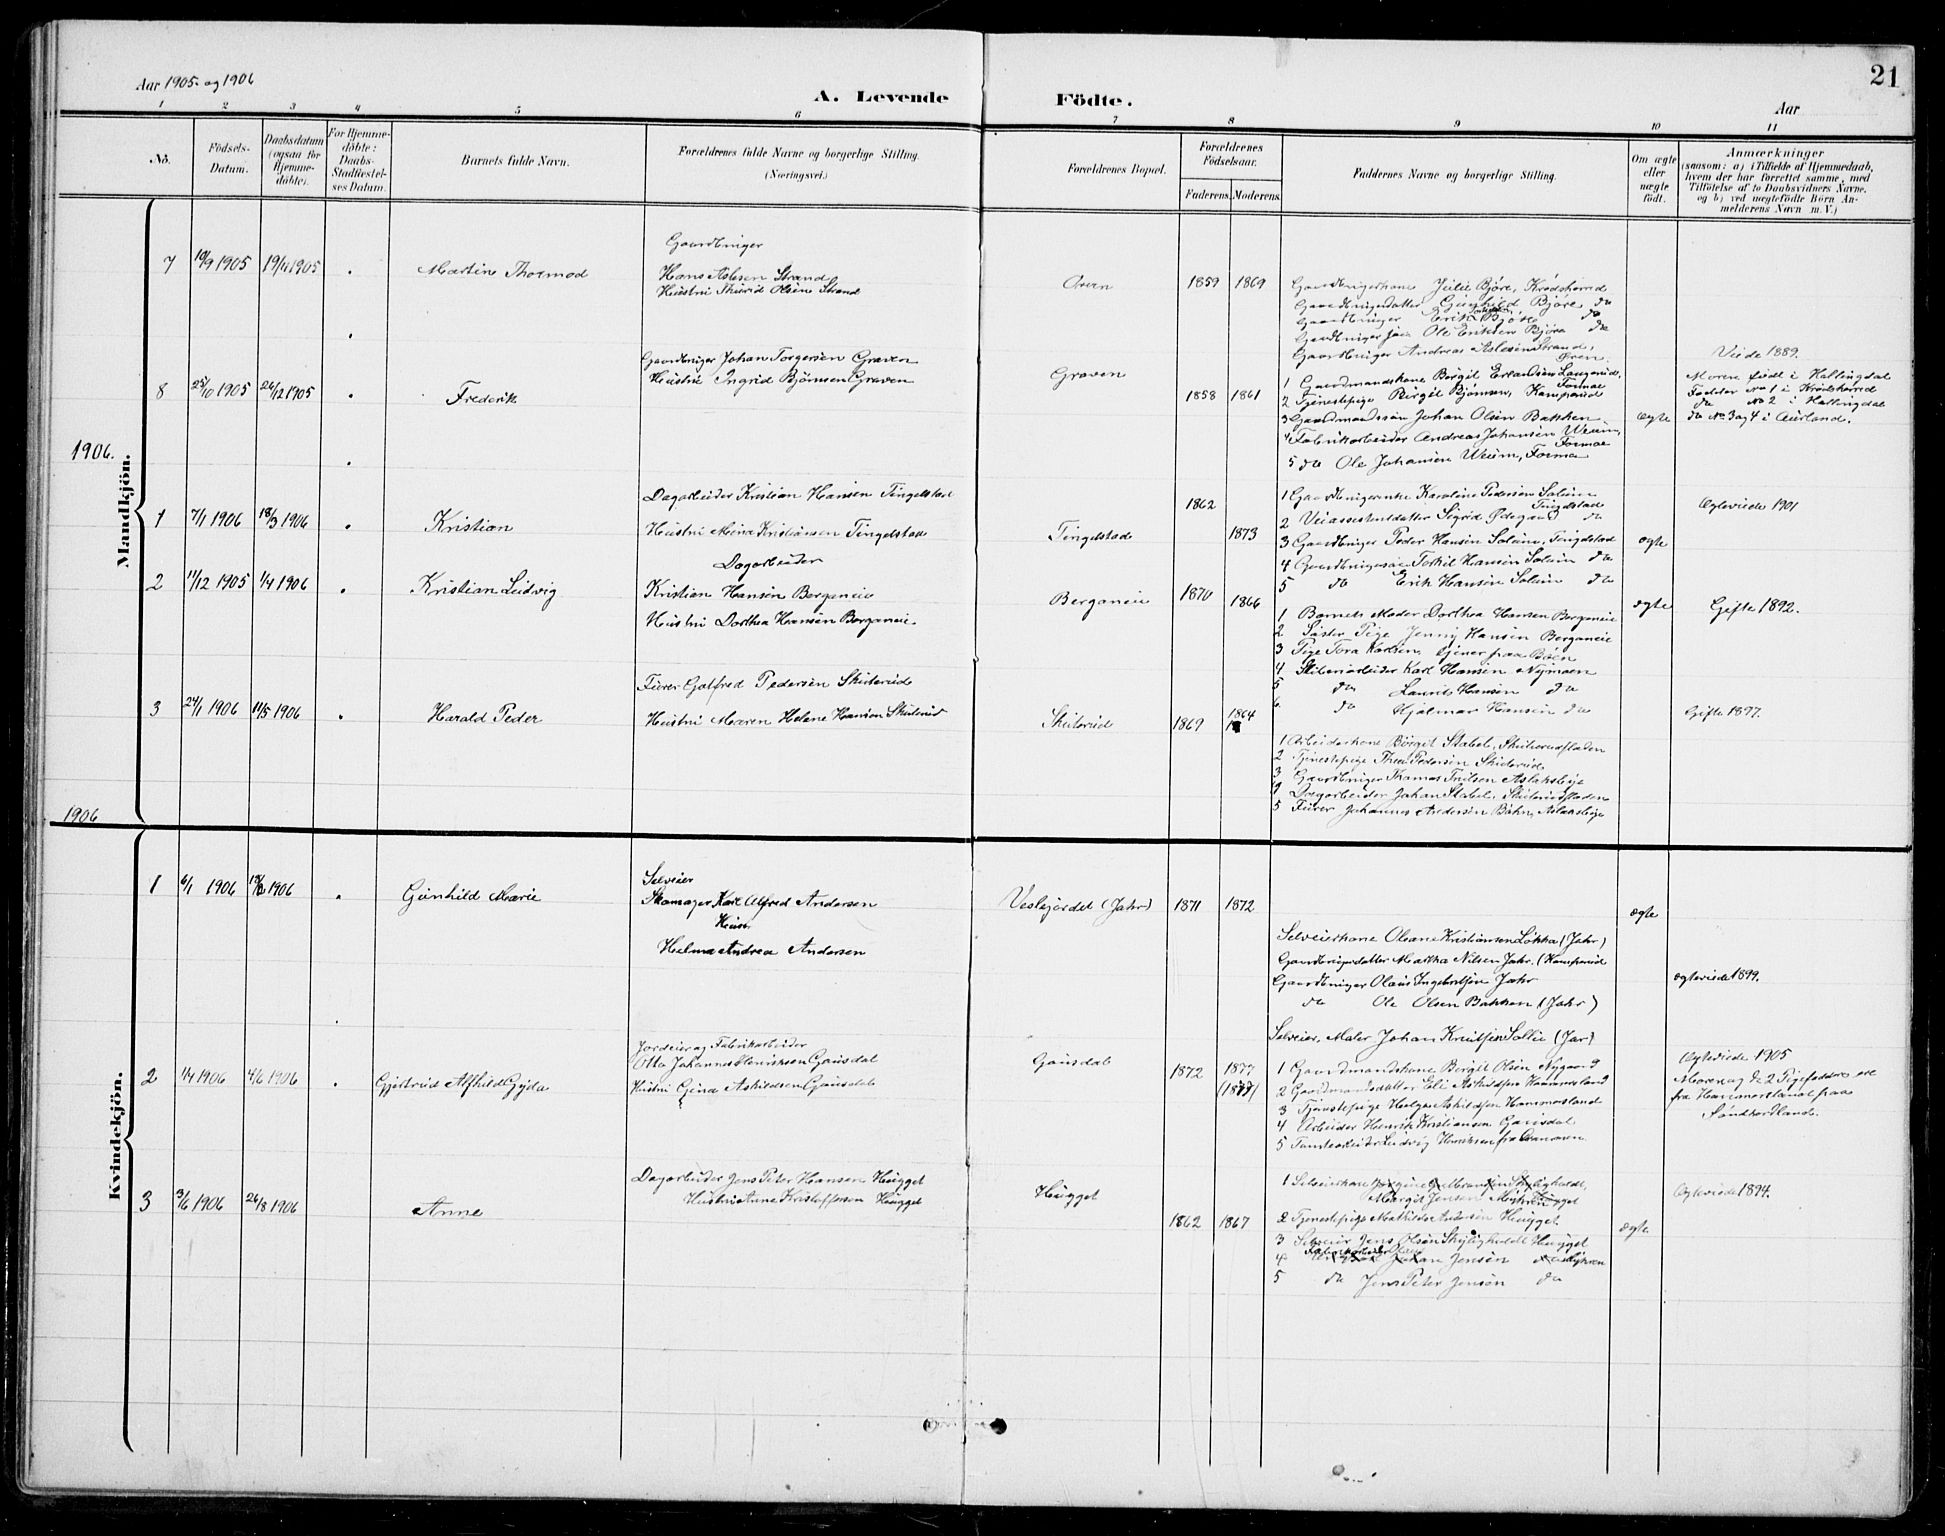 21
Aar 1905 og 1906
A. Levende Födte.
Aar
1 2 3 4 5 6 7 8 9 10 11
No.
Födsels-Datum.
Daabsdatum (ogsaa for Hjemme-døbte).
For Hjemme-döbte: Daabs-Stadfæstel-ses Datum.
Barnets fulde Navn.
Forældrenes fulde Navne og borgerlige Stilling.
(Næringsvei.)
Forældrenes Bopæl.
Forældrenes Födselsaar.
Faderens. Moderens.
Faddernes Navne og borgerlige Stilling.
Om ægte eller uægte födt.
Anmærkninger
(saasom: a) i Tilfælde af Hjemmedaab,
hvem der har forrettet samme, med
Tilföielse af to Daabsvidners Navne.
og b) ved uægtefödte Börn An-
melderens Navn m. V.)
Mandkjön.
7 19/9 1905 19/11 1905 Martin Thormod
Gaardbruger
Hans Aslesen Strand
Hustru Thurid Olsen Strand
Øren 1859 1869
Gaardbrugerkone Julie Bjøre, Krødsherred
Gaardbrugerdatter Gunhild Bjøre do
Gaardbruger Erik Bjøre do
Gaardbruger søn Ole Eriksen Bjøre do
Gaardbruger Andreas Aslesen Strand,
Øren.
8 25/10 1905 26/12 1905 Frederik
Gaardbruger Johan Torgersen Graven
Hustru Ingrid Bjørnsen Graven
Graven 1858 1861
1 Gaardmandskone Børgit Erlandsen Langerud,
2 Tjenestepige Bergit Bjørnsen, Kamperud
3 Gaardmandssøn Johan Olsen Bakken
4 Fabrikarbeider Andreas Johansen Weum,
Formoe
5 do Ole Johansen Weum, Formo
ægte
Viede 1889.
Moren født i Hallingdal
Fadder No 1 i Krødsherred
do No 2 i Hallingdal
do No 3 og 4 i Aurland.
1906.
1 7/1 1906 18/3 1906 Kristian
Dagarbeider Kristian Hansen Tingelstad
Hustru Mina Kristiansen Tingelstad
Tingelstad 1862 1873
1 Gaardbrugerenke Karoline Pedersen Solum
Tingelstad
2 Veiassistentdatter Sigrid Ødegaard do
3 Gaardbruger Peder Hansen Solum, Tingelstad
4 Gaardbrugersøn Torkil Hansen Solum do
5 do Erik Hansen Solum do
ægte
Ægteviede 1901
2 11/12 1905 1/4 1906 Kristian Ludvig
Dagarbeider
Kristian Hansen Berganeie
Hustru Dorthea Hansen Berganeie
Berganeie 1870 1866
1 Barnets Moder Dorthea Hansen Berganeie
2 Søster Pige Jenny Hansen Berganeie
3 Pige Tora Karlsen, tjener paa Bøen
4 Sliberiarbeider Karl Hansen Nymoen
5 do Laurits Hansen do
6 do Hjalmar Hansen do
ægte
Gifte 1892.
3 24/1 1906 11/5 1906 Harald Peder
Furer Gotfred Pedersen Skuterud
Hustru Maren Helene Hansen Skuterud
Skuterud 1869 1864
1 Arbeiderkone Børgit Stabel, Skuterudfladen
2 Tjenestepige Thea Pedersen Skuterud
3 Gaardbruger Thomas Trulsen Aslaksbye
4 Dagarbeider Johan Stabel, Skuterudfladen
5 Furer Johannes Andersen Bohn, Aslaksbye
Gifte 1897.
1906
Kvindekjön.
1 6/1 1906 1906 Gunhild Marie
Selveier
Skomager Karl Alfred Andersen
Hustr
Helma Andrea Andersen
Veslejordet (Jahr) 1871 1872
Selveierkone Oleane Kristiansen Løkka (Jahr)
Gaardbrugerdatter Martha Nilsen Jahr. (Kamperud
Gaardbruger Olaus Ingebretsen Jahr
do Ole Olsen Bakken (Jahr)
Selveier, Maler Johan Knutsen Sollie (Jar)
ægte
ægteviede 1899.
2 1/4 1906 4/6 1906 Gjertrud Alfhild Gyda
Jordeier og Fabrikarbeider
Otto Johannes Henriksen Gausdal
Hustru Gina Askildsen Gausdal
Gausdal 1872 1877
(1877)
1 Gaardmandskone Bergit Olsen Nygaard
2 Gaardmandsdatter Eli Askildsen Hammersland
3 Tjenestepige Helga Askildsen Hammersland
4 Arbeider Henrik Kristiansen Gausdal
5 Tomtearbeider Ludvig Henriksen fra Drammen.
Ægteviede 1905
Moren og de 2 Pigefaddere ere
fra Hammersland paa
Søndhordland.
3 3/6 1906 26/8 1906 Anne
Dagarbeider Jens Peter Hansen Hugget
Hustru Anne Kristoffersen Hugget
Hugget 1862 1867
1 Selveierkone
Margit Jensen Myhren
2 Tjenestepige Mathilde Andersen Hugget.
3 Selveier Jens Olsen Skjligholdt Hugget
4 Fabrikarbeider Johan Jensen Myhren
5 do Jens Peter Jensen do
ægte
Ægteviede 1894.